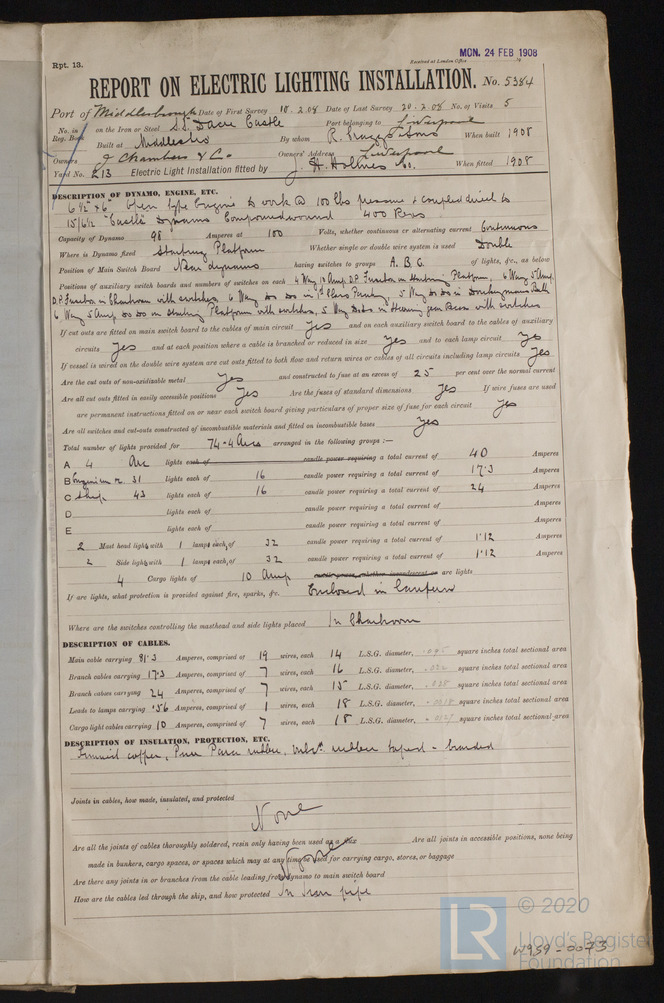 Rpt. 13.
Received at London Office
MON. 24 FEB 1908
REPORT ON ELECTRIC LIGHTING INSTALLATION. No. 5384
Port of Middlesbrough Date of First Survey 18.2.08 Date of Last Survey 20.2.08 No. of Visits 5
No. in Reg. Book on the Iron or Steel S.S. Dacre Castle Port belonging to Liverpool
Built at Middlesbro By whom R. & Sons When built 1908
Owners J Chambers & Co. Owners' Address Liverpool
Yard No. 213 Electric Light Installation fitted by J. H. Holmes Co. When fitted 1908
DESCRIPTION OF DYNAMO, ENGINE, ETC.
6½" × 6" Open type Engine to work @ 100 lbs pressure & coupled direct to
15/6½ "Castle" Dynamo Compoundwound 400 Revs
Capacity of Dynamo 98 Amperes at 100 Volts, whether continuous or alternating current Continuous
Where is Dynamo fixed Starting Platform Whether single or double wire system is used Double
Position of Main Switch Board Near dynamo having switches to groups A. B. C. of lights, &c., as below
Positions of auxiliary switch boards and numbers of switches on each 6 Way 10 Amp. D.P. Fusebox in Starting Platform, 6 Way 5 Amp.
D.P. Fusebox in Chartroom with switches, 6 Way Do Do in 5 Way Do Do in
6 Way 5 Amp Do Do on Starting Platform with switches, 5 Way Do Do in Steering gear with switches
If cut outs are fitted on main switch board to the cables of main circuit Yes and on each auxiliary switch board to the cables of auxiliary
circuits Yes and at each position where a cable is branched or reduced in size Yes and to each lamp circuit Yes
If vessel is wired on the double wire system are cut outs fitted to both flow and return wires or cables of all circuits including lamp circuits Yes
Are the cut outs of non-oxidizable metal Yes and constructed to fuse at an excess of 25 per cent over the normal current
Are all cut outs fitted in easily accessible positions Yes Are the fuses of standard dimensions Yes If wire fuses are used
are permanent instructions fitted on or near each switch board giving particulars of proper size of fuse for each circuit Yes
Are all switches and cut-outs constructed of incombustible materials and fitted on incombustible bases Yes
Total number of lights provided for 74-4 Arcs arranged in the following groups :—
A 4 Arc lights each of candle power requiring a total current of 40 Amperes
B Engine rm 31 lights each of 16 candle power requiring a total current of 17.3 Amperes
C Ship 43 lights each of 16 candle power requiring a total current of 24 Amperes
D lights each of candle power requiring a total current of Amperes
E lights each of candle power requiring a total current of Amperes
2 Mast head lights with 1 lamps each of 32 candle power requiring a total current of 1.12 Amperes
2 Side lights with 1 lamps each of 32 candle power requiring a total current of 1.12 Amperes
4 Cargo lights of 10 Amp candle power, whether incandescent or arc lights
If arc lights, what protection is provided against fire, sparks, &c. Enclosed in lantern
Where are the switches controlling the masthead and side lights placed In Chartroom
DESCRIPTION OF CABLES.
Main cable carrying 81.3 Amperes, comprised of 19 wires, each 14 L.S.G. diameter, .095 square inches total sectional area
Branch cables carrying 17.3 Amperes, comprised of 7 wires, each 16 L.S.G. diameter, .022 square inches total sectional area
Branch cables carrying 24 Amperes, comprised of 7 wires, each 15 L.S.G. diameter, .028 square inches total sectional area
Leads to lamps carrying .56 Amperes, comprised of 1 wires, each 18 L.S.G. diameter, .0018 square inches total sectional area
Cargo light cables carrying 10 Amperes, comprised of 7 wires, each 18 L.S.G. diameter, .0127 square inches total sectional area
DESCRIPTION OF INSULATION, PROTECTION, ETC.
Tinned copper, Pure Para rubber, Vulc. rubber taped & braided
Joints in cables, how made, insulated, and protected
None
Are all the joints of cables thoroughly soldered, resin only having been used as a flux Are all joints in accessible positions, none being
made in bunkers, cargo spaces, or spaces which may at any time be used for carrying cargo, stores, or baggage None
Are there any joints in or branches from the cable leading from dynamo to main switch board
How are the cables led through the ship, and how protected In Iron pipe
LR © 2020
Lloyd's Register
Foundation
W959-0073